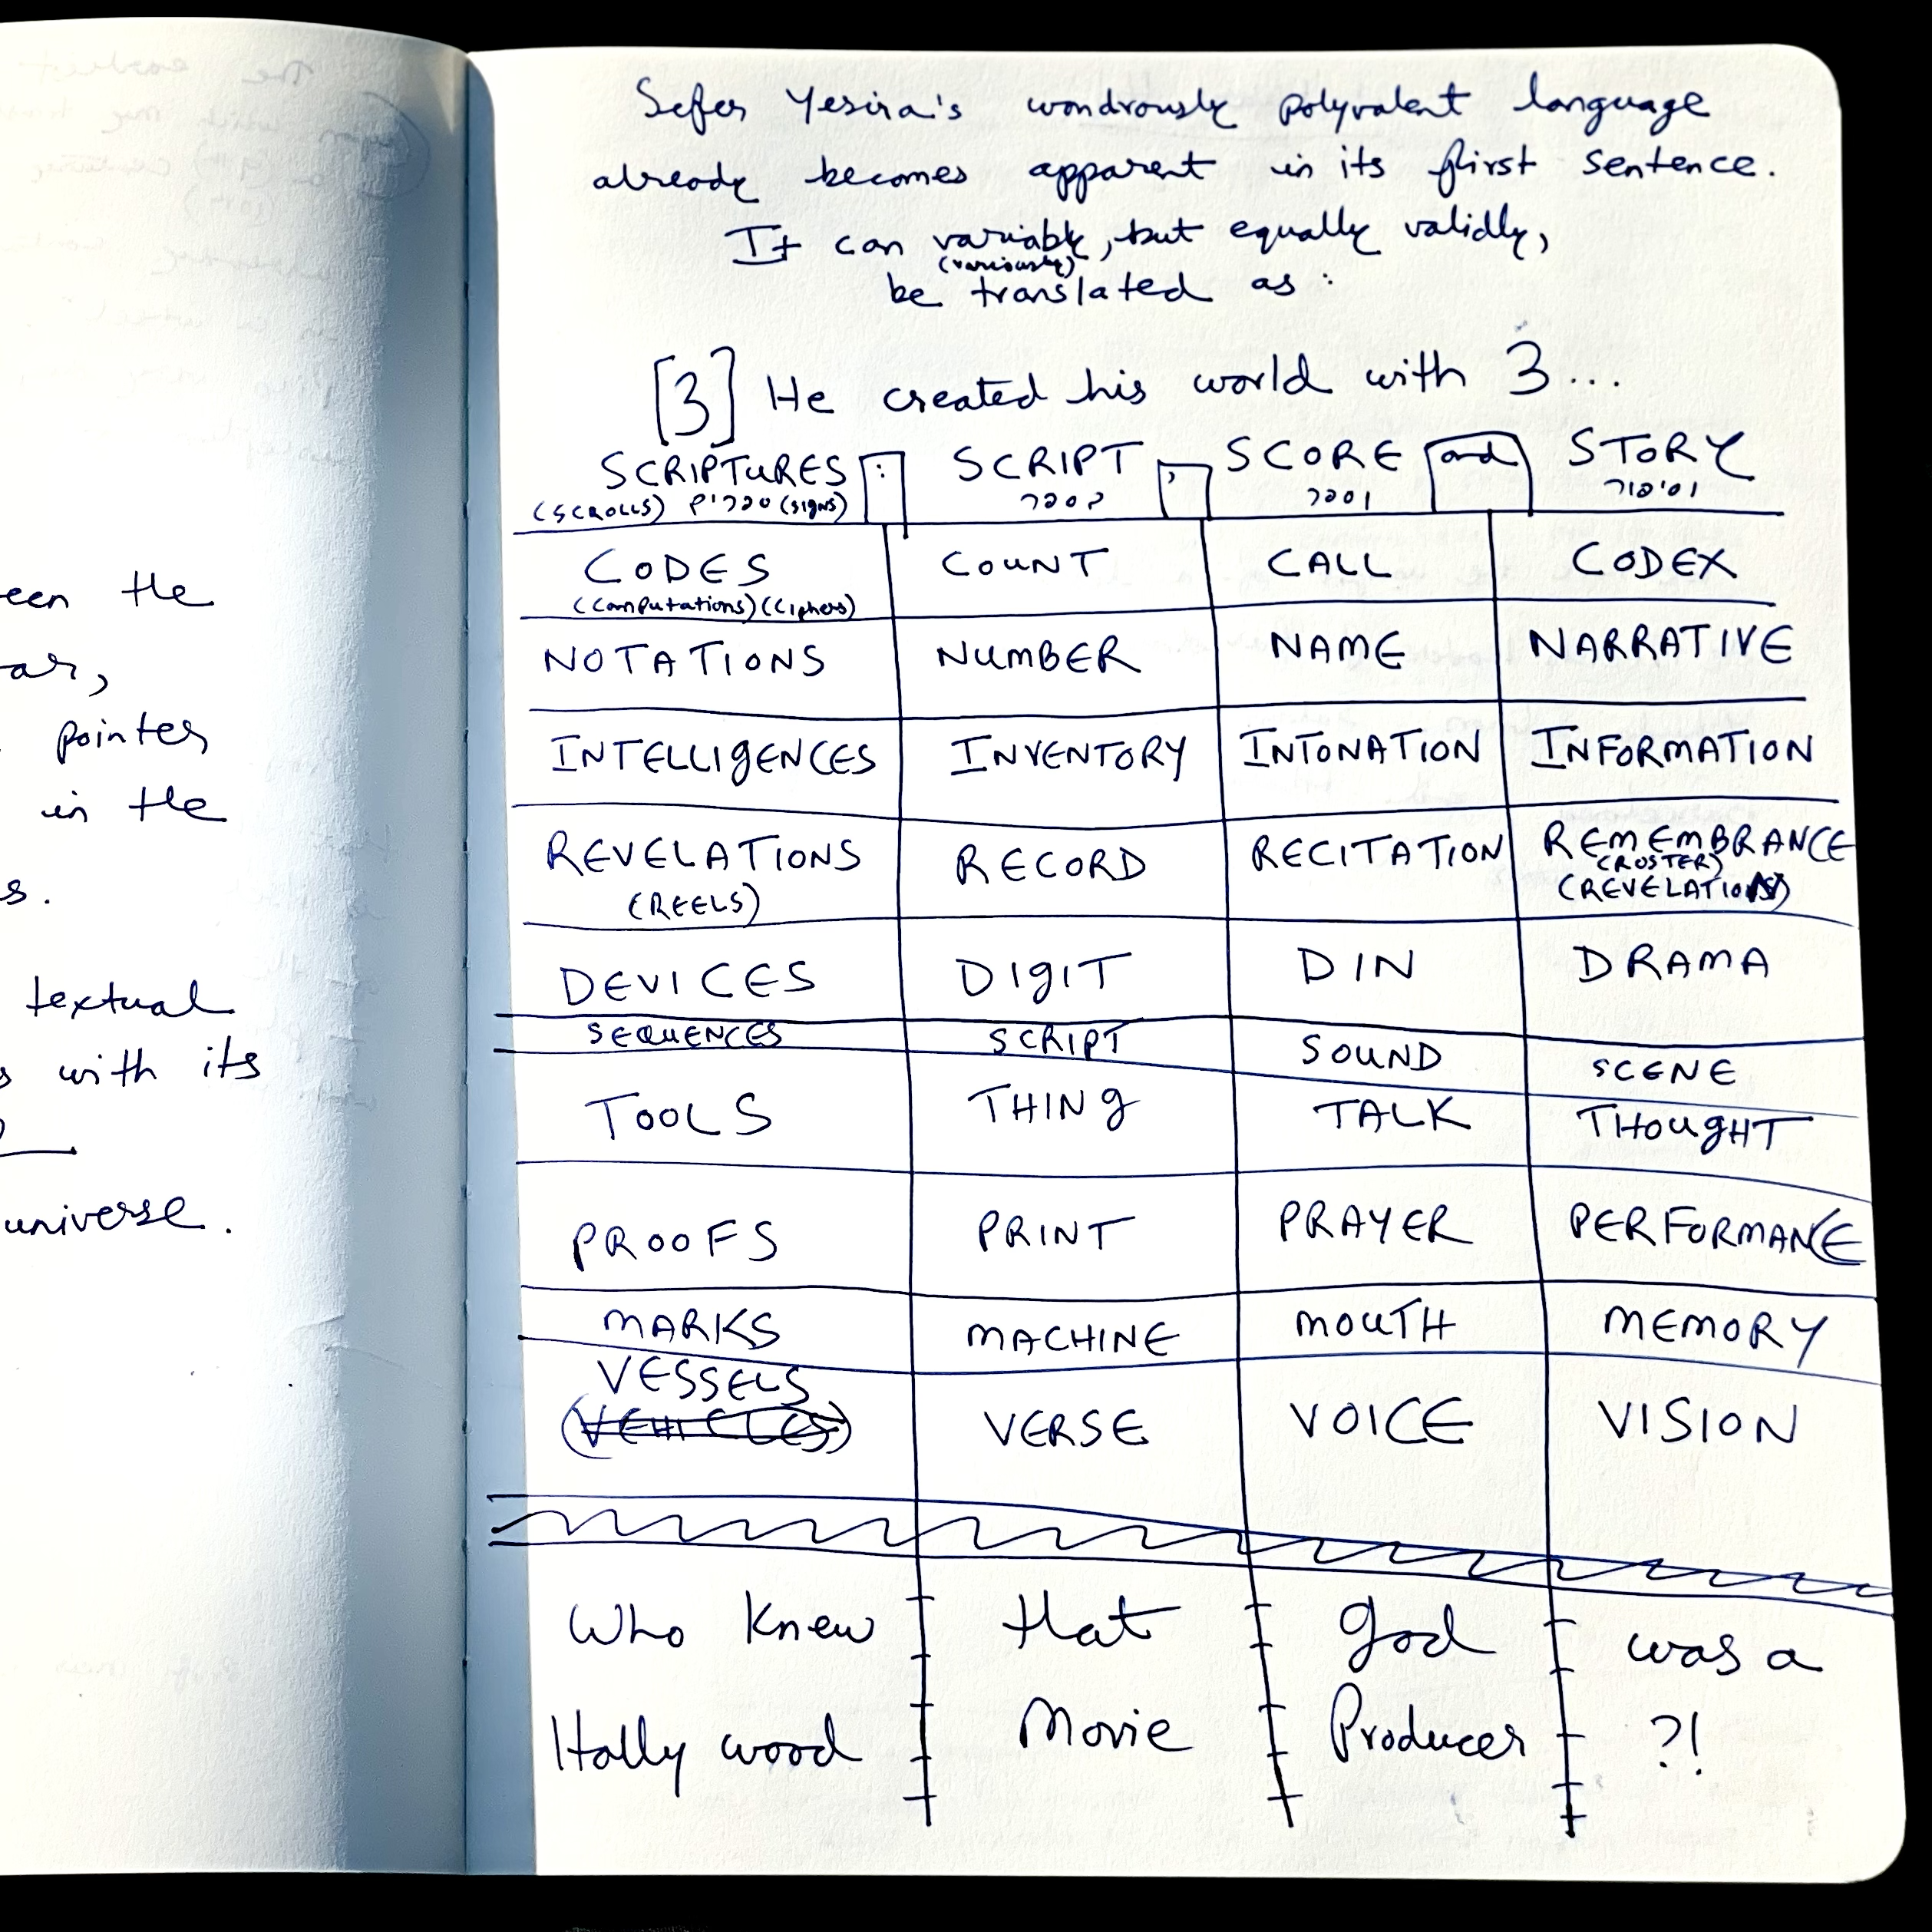 een the
ar,
pointer
in the
s.
textual
s with its
universe.
Sefer Yesira's wondrously polyvalent language
already becomes apparent in its first sentence.
It can variably, but equally validly,
(variously)
be translated as :
[3] He created his world with 3...
SCRIPTURES : SCRIPT , SCORE and STORY
(SCROLLS) ספרים (signs) בספר וספר וסיפור
CODES COUNT CALL CODEX
(Computations) (Ciphers)
NOTATIONS NUMBER NAME NARRATIVE
INTELLIGENCES INVENTORY INTONATION INFORMATION
REVELATIONS RECORD RECITATION REMEMBRANCE
(REELS) (ROSTER)
(REVELATION)
DEVICES DIGIT DIN DRAMA
SEQUENCES SCRIPT SOUND SCENE
TOOLS THING TALK THOUGHT
PROOFS PRINT PRAYER PERFORMANCE
MARKS MACHINE MOUTH MEMORY
VESSELS
(VEHICLES) VERSE VOICE VISION
Who Knew that God was a
Hollywood Movie Producer ?!